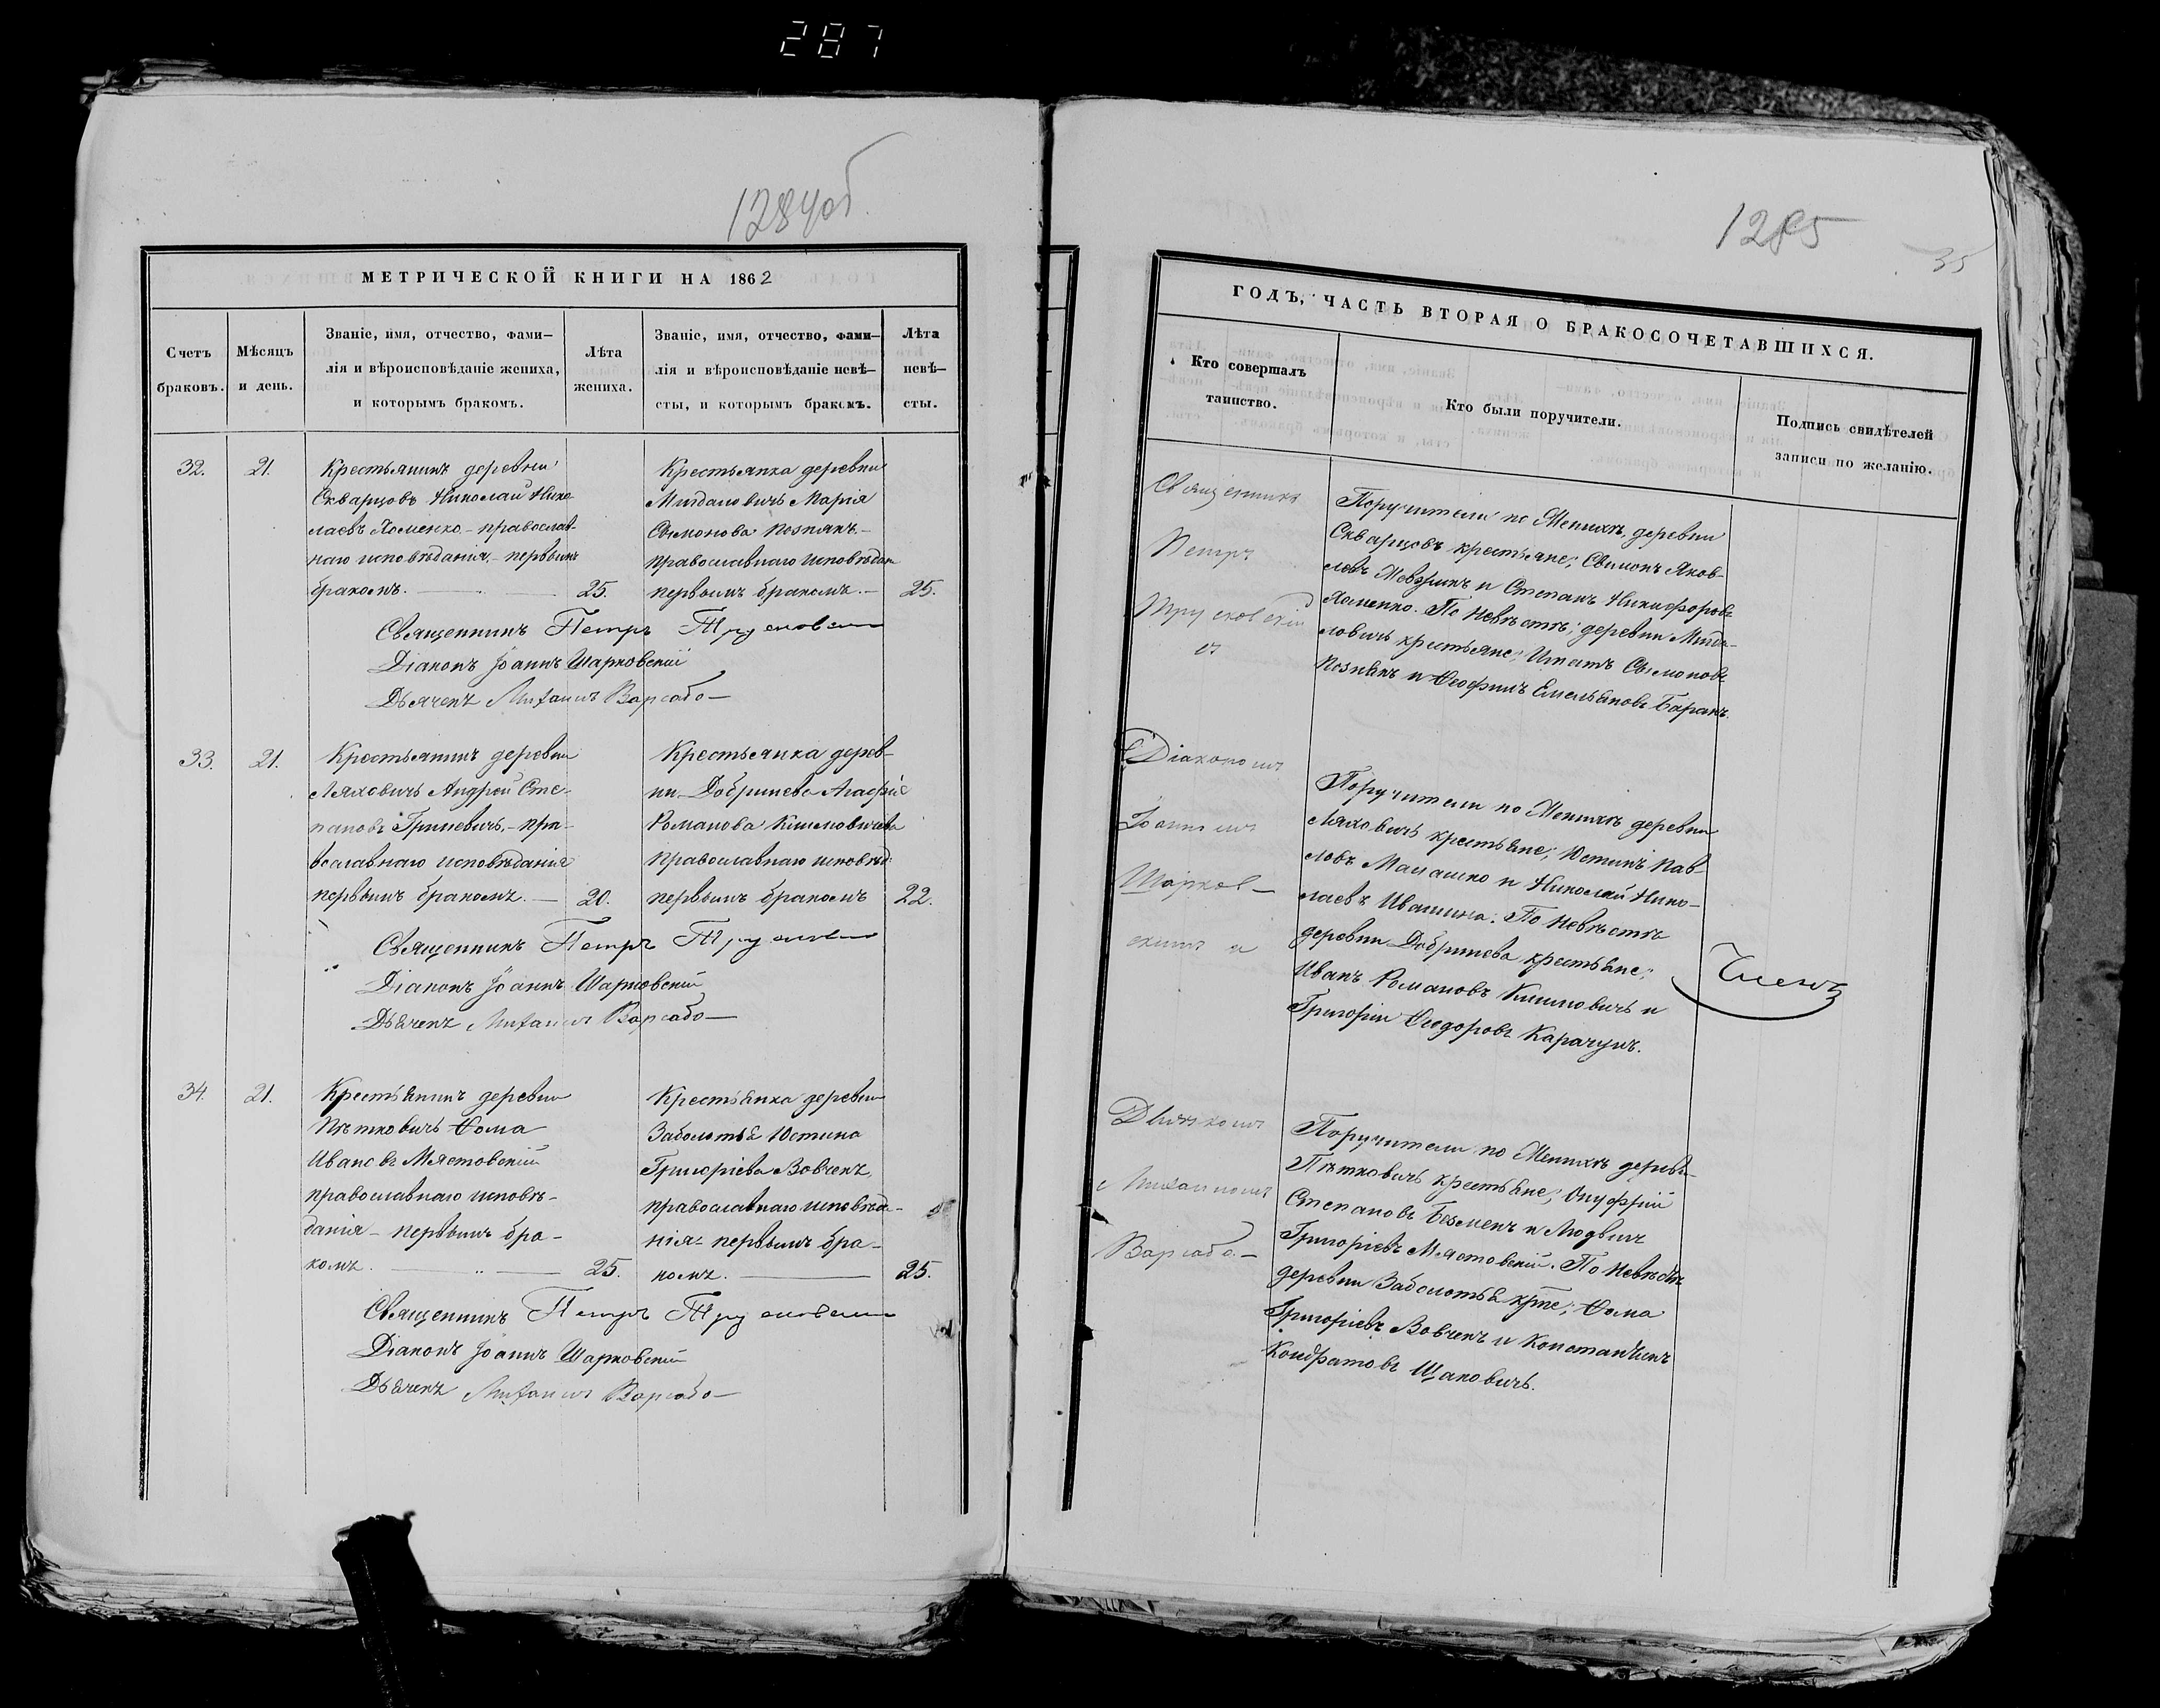 287
1284об.
МЕТРИЧЕСКОЙ КНИГИ НА 1862
Счетъ
браковъ.
Мѣсяцъ
и день.
Званіе, имя, отчество, фами-
лія и вѣроисповѣданіе жениха,
и которымъ бракомъ.
Лѣта
жениха.
Званіе, имя, отчество, фами-
лія и вѣроисповѣданіе невѣ-
сты, и которымъ бракомъ.
Лѣта
невѣ-
сты.
32.
21.
Крестьянинъ деревни
Скварцовъ Николай Нико-
лаевъ Хоменко - православ-
наго исповѣданія, - первымъ
бракомъ.
25.
Крестьянка деревни
Мигдаловичъ Марія
Сѵмонова Познякъ. -
православнаго исповѣдан
первымъ бракомъ. -
25.
Священникъ Петръ
Діаконъ Іоаннъ Шарковскій
Дьячекъ Михаилъ Варсабо
33.
21.
Крестьянинъ деревни
Ляховичъ Андрей Сте-
пановъ Гриневичъ, - пра-
вославнаго исповѣданія
первымъ бракомъ. -
20.
Крестьянка дерев-
ни Добринева Агафіе
Романова Климовичева
православнаго исповѣд:
первымъ бракомъ
22.
Священникъ Петръ
Діаконъ Іоаннъ Шарковскій
Дьячекъ Михаилъ Варсабо
34.
21.
Крестьянинъ деревни
Пѣтковичъ Ѳома
Ивановъ Мястовскій
православнаго исповѣ-
данія - первымъ бра-
комъ.
25.
Крестьянка деревни
Заболотья Юстина
Григоріева Вовчекъ,
православнаго исповѣда-
нія - первымъ бра-
комъ.
25.
Священникъ Петръ
Діаконъ Іоаннъ Шарковскій
Дьячекъ Михаилъ Варсабо
1285
35
ГОДЪ, ЧАСТЬ ВТОРАЯ О БРАКОСОЧЕТАВШИХСЯ.
Кто совершалъ
таинство.
Кто были поручители.
Подпись свидѣтелей
записи по желанію.
Священникъ
Петръ
съ
Діакономъ
Іоанномъ
Шарков-
скимъ и
Дьячкомъ
Михаиломъ
Варсабо. -
Поручители по Женихѣ, деревни
Скварцовъ крестьяне; Сѵмонъ Яков-
левъ и Степанъ Никифоровъ
Хоменко. По Невѣстѣ; деревни Мигда-
ловичъ крестьяне; Игнатъ Сѵмоновъ
Познякъ и Ѳеофилъ Емельяновъ Баранъ.
Поручители по Женихѣ деревни
Ляховичъ крестьяне; Юстинъ Пав-
ловъ и Николай Нико-
лаевъ Ивашина. По Невѣстѣ
деревни Добринева крестьяне;
Иванъ Романовъ Климовичъ и
Григорій Ѳеодоровъ Карачунъ.
Поручители по Женихѣ дерев.
Пѣтковичъ крестьяне; Онуфрій
Степановъ Безменъ и Людвигъ
Григоріевъ Мястовскій. По Невѣстѣ
деревни Заболотья крте; Ѳома
Григоріевъ Вовчекъ и Константинъ
Кондратовъ Щаковичъ.
Членъ